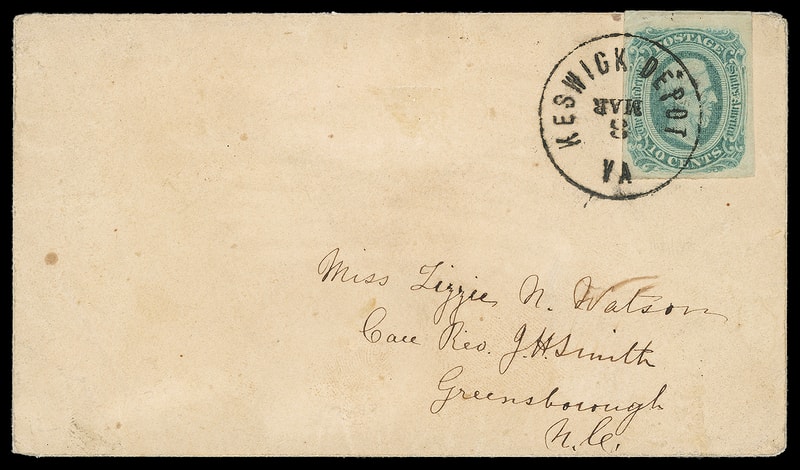 POSTAGE
The Confederate States of America
10 CENTS
KESWICK DEPOT
MAR
8
VA
Miss Lizzie N. Watson
Care Rev. J.H. Smith
Greensborough
N.C.